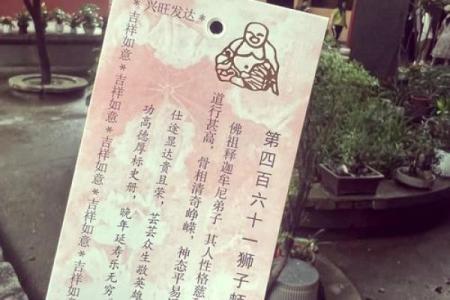 第四百六十一狮子
佛祖释迦牟尼弟子，其人性格慈
道行甚高，骨相清奇峥嵘，神态平易
仕途显达贵且荣，芸芸众生敬英雄
功高德厚标史册，晚年延寿乐无穷。
*兴旺发达*
吉祥如意*吉祥如意*吉祥如意*吉祥如意